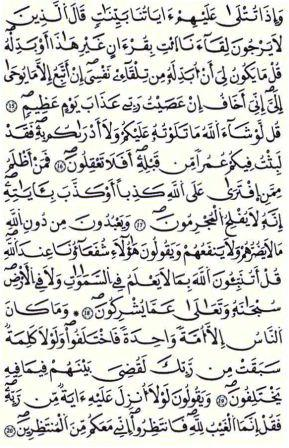 وَإِذَا تُتْلَىٰ عَلَيْهِمْ ءَايَاتُنَا بَيِّنَاتٍ قَالَ ٱلَّذِينَ
لَا يَرْجُونَ لِقَآءَنَا ٱئْتِ بِقُرْءَانٍ غَيْرِ هَٰذَآ أَوْ بَدِّلْهُ
قُلْ مَا يَكُونُ لِىٓ أَنْ أُبَدِّلَهُۥ مِن تِلْقَآئِ نَفْسِىٓ إِنْ أَتَّبِعُ إِلَّا مَا يُوحَىٰٓ
إِلَىَّ إِنِّىٓ أَخَافُ إِنْ عَصَيْتُ رَبِّى عَذَابَ يَوْمٍ عَظِيمٍ ١٥
قُل لَّوْ شَآءَ ٱللَّهُ مَا تَلَوْتُهُۥ عَلَيْكُمْ وَلَآ أَدْرَاكُم بِهِۦ فَقَدْ
لَبِثْتُ فِيكُمْ عُمُرًا مِّن قَبْلِهِۦٓ أَفَلَا تَعْقِلُونَ ١٦ فَمَنْ أَظْلَمُ
مِمَّنِ ٱفْتَرَىٰ عَلَى ٱللَّهِ كَذِبًا أَوْ كَذَّبَ بِـَٔايَاتِهِۦٓ
إِنَّهُۥ لَا يُفْلِحُ ٱلْمُجْرِمُونَ ١٧ وَيَعْبُدُونَ مِن دُونِ ٱللَّهِ
مَا لَا يَضُرُّهُمْ وَلَا يَنفَعُهُمْ وَيَقُولُونَ هَٰٓؤُلَآءِ شُفَعَٰٓؤُنَا عِندَ ٱللَّهِ
قُلْ أَتُنَبِّـُٔونَ ٱللَّهَ بِمَا لَا يَعْلَمُ فِى ٱلسَّمَٰوَٰتِ وَلَا فِى ٱلْأَرْضِ
سُبْحَٰنَهُۥ وَتَعَٰلَىٰ عَمَّا يُشْرِكُونَ ١٨ وَمَا كَانَ
ٱلنَّاسُ إِلَّآ أُمَّةً وَٰحِدَةً فَٱخْتَلَفُوا۟ وَلَوْلَا كَلِمَةٌ
سَبَقَتْ مِن رَّبِّكَ لَقُضِىَ بَيْنَهُمْ فِيمَا فِيهِ
يَخْتَلِفُونَ ١٩ وَيَقُولُونَ لَوْلَآ أُنزِلَ عَلَيْهِ ءَايَةٌ مِّن رَّبِّهِۦ
فَقُلْ إِنَّمَا ٱلْغَيْبُ لِلَّهِ فَٱنتَظِرُوٓا۟ إِنِّى مَعَكُم مِّنَ ٱلْمُنتَظِرِينَ ٢٠